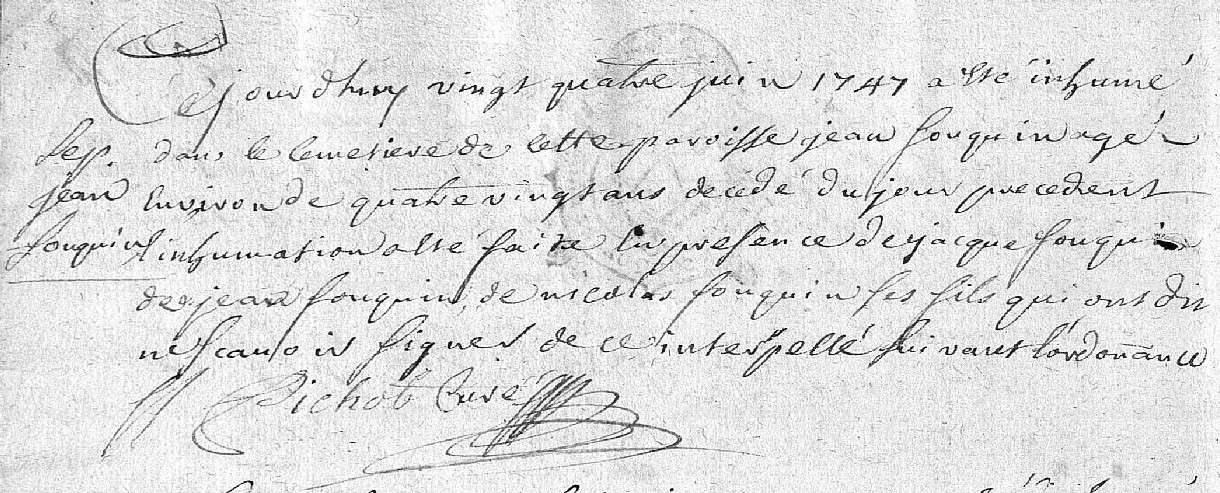 Cejourdhuy vingt quatre juin 1747 a esté inhumé
Sep. dans le Cemetiere de cette paroisse jean fouquin agé
jean Environ de quatre vingt ans decedé du jour precedent
fouquin l'inhumation a esté faite En presence de jacque fouquin
de jean fouquin, de nicolas fouquin ses fils qui ont dit
ne scavoir signer de ce interpellé suivant l'ordoñance
Pichot Curé